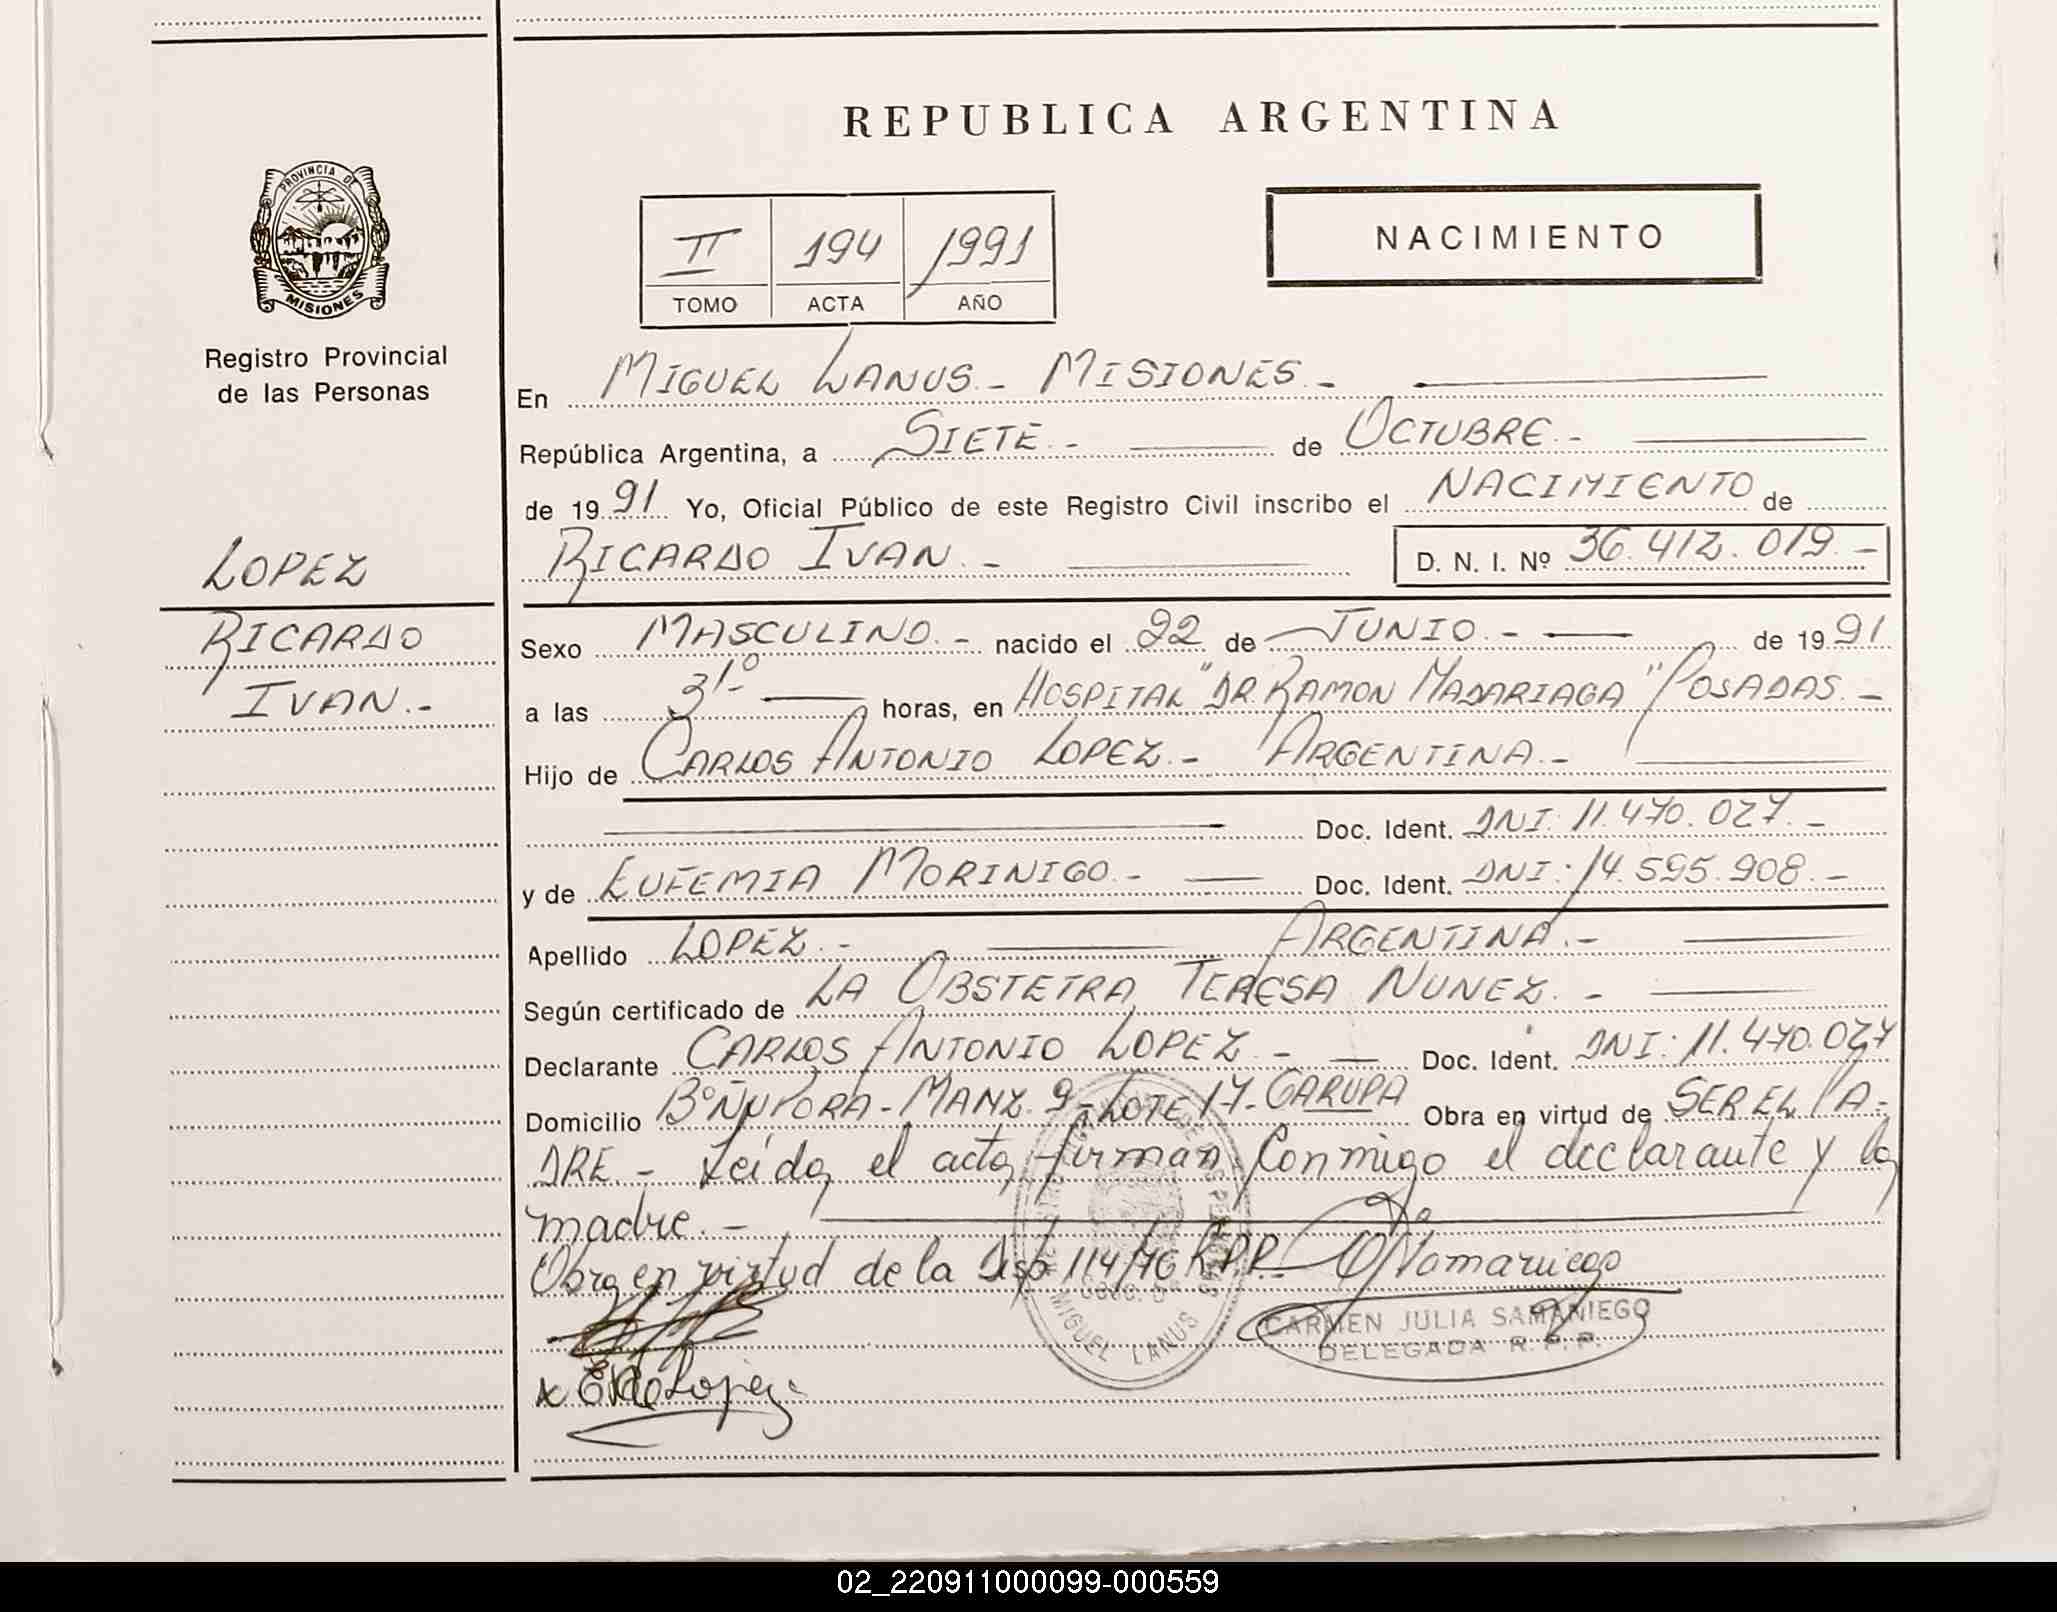 REPUBLICA ARGENTINA
PROVINCIA DE MISIONES
Registro Provincial
de las Personas
II 194 1991
TOMO ACTA AÑO
NACIMIENTO
En MIGUEL LANUS - MISIONES. -
República Argentina, a SIETE. - de OCTUBRE. -
de 1991 Yo, Oficial Público de este Registro Civil inscribo el NACIMIENTO de
LOPEZ
RICARDO
IVAN. -
RICARDO IVAN. - D. N. I. Nº 36.412.019. -
Sexo MASCULINO. - nacido el 22 de JUNIO. - de 1991
a las 31º- horas, en HOSPITAL "DR. RAMON MADARIAGA" POSADAS. -
Hijo de CARLOS ANTONIO LOPEZ. - ARGENTINA. -
Doc. Ident. DNI: 11.470.027. -
y de EUFEMIA MORINIGO. - Doc. Ident. DNI: 14.595.908. -
Apellido LOPEZ. - ARGENTINA. -
Según certificado de LA OBSTETRA TERESA NUNEZ. -
Declarante CARLOS ANTONIO LOPEZ. - Doc. Ident. DNI: 11.470.027
Domicilio Bº ÑU PORA - MANZ. 9 - LOTE 17 - GARUPA Obra en virtud de SER EL PA-
DRE. - Leída el acta, firman conmigo el declarante y la
madre. -
Obra en virtud de la Disp 114/76 R.P.P. -
CARMEN JULIA SAMANIEGO
DELEGADA R. P. P.
MIGUEL LANUS
Lopez
02_220911000099-000559